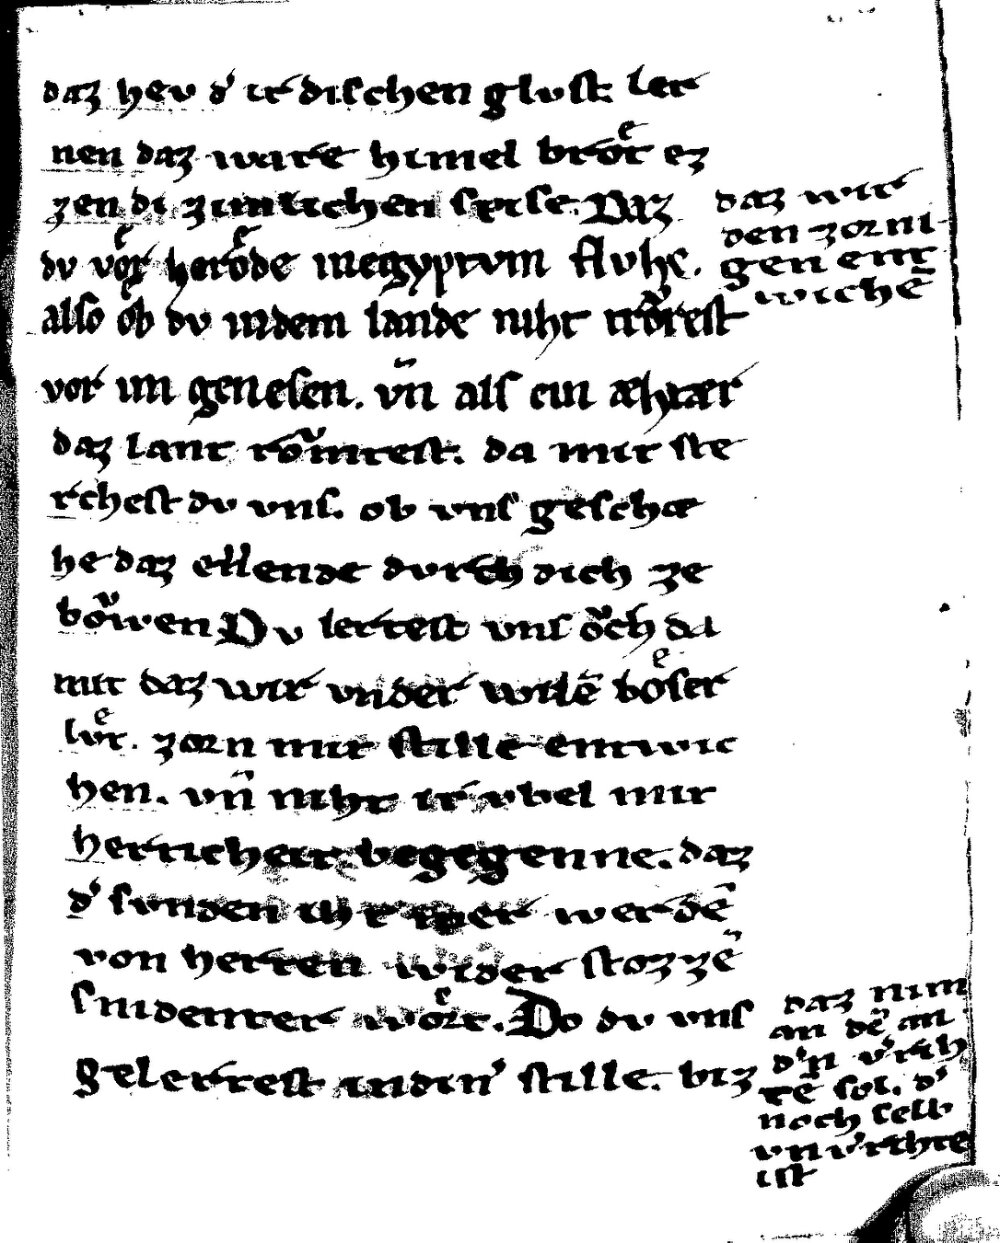 daz hev d' irdischen glust ler
nen daz ware himel broͤt ez
zen di zimlichen spise. Daz
dv voͤr heroͤde inegyptvm fluhe.
also ob dv indem lande niht trvͦrest
vor im genesen. vn̄ als ein æhtær
daz lant rovmtest. da mit ste
rchest dv vns. ob vns geschæ
he daz ellende dvrch dich ze
boͮwen Dv lertest vns oͮch da
mit daz wir vnder wilē boͤser
lvͤt. zorn mit stille entwic
hen. vn̄ niht ir vbel mit
herticheit begegenne. daz
d' svnden iht mer werdē
von herten wider stozzē
snidenter woͤrt. Do dv vns
gelertest indin' stille. biz
daz wir
den zorni
gen ent
wichē
daz nim
an dē an
d'n v'rih
tē sol. d'
noch selb
vnv'rihte
ist